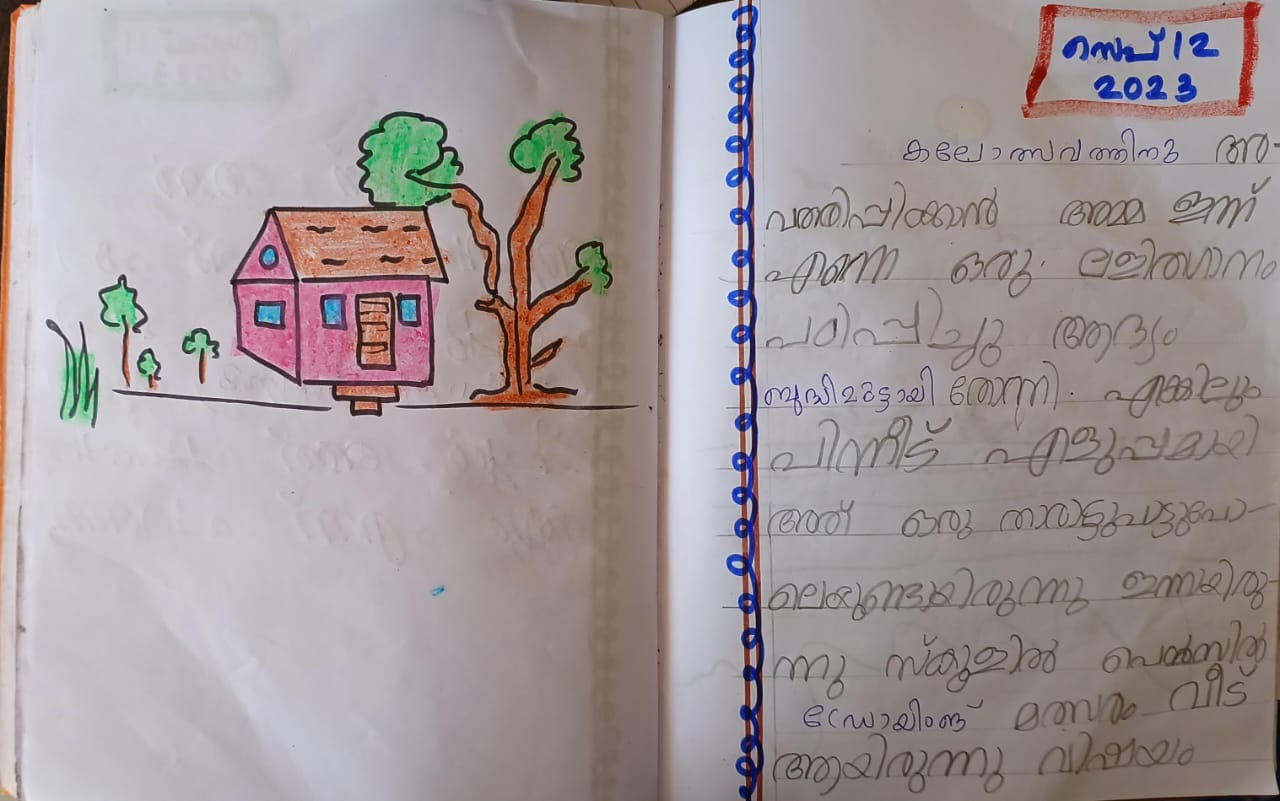 സെപ്12
2023
കലോത്സവത്തിനു അ-
വതരിപ്പിക്കാൻ അമ്മ ഇന്ന്
എന്നെ ഒരു ലളിതഗാനം
പഠിപ്പിച്ചു ആദ്യം
ബുദ്ധിമുട്ടായി തോന്നി. എങ്കിലും
പിന്നീട് എളുപ്പമായി
അത് ഒരു താരാട്ടുപാട്ടുപോ-
ലെയുണ്ടായിരുന്നു ഇന്നായിരു-
ന്നു സ്കൂളിൽ പെൻസിൽ
ഡ്രോയിംങ് മത്സരം വീട്
ആയിരുന്നു വിഷയം